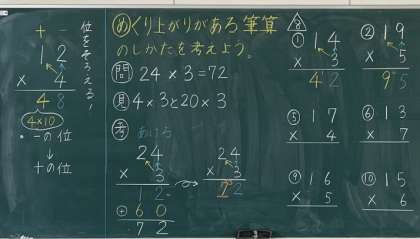 位をそろえる!
十 一
1 2
× 4
4 8
4×10
・一の位
↓
十の位
めくり上がりがある筆算
のしかたを考えよう。
問 24×3=72
見 4×3と20×3
考 あける
24
× 3
12
+ 60
72
24
× 3
72
① 14
× 3
42
② 19
× 5
95
⑤ 17
× 4
⑥ 13
× 7
⑨ 16
× 5
⑩ 15
× 6